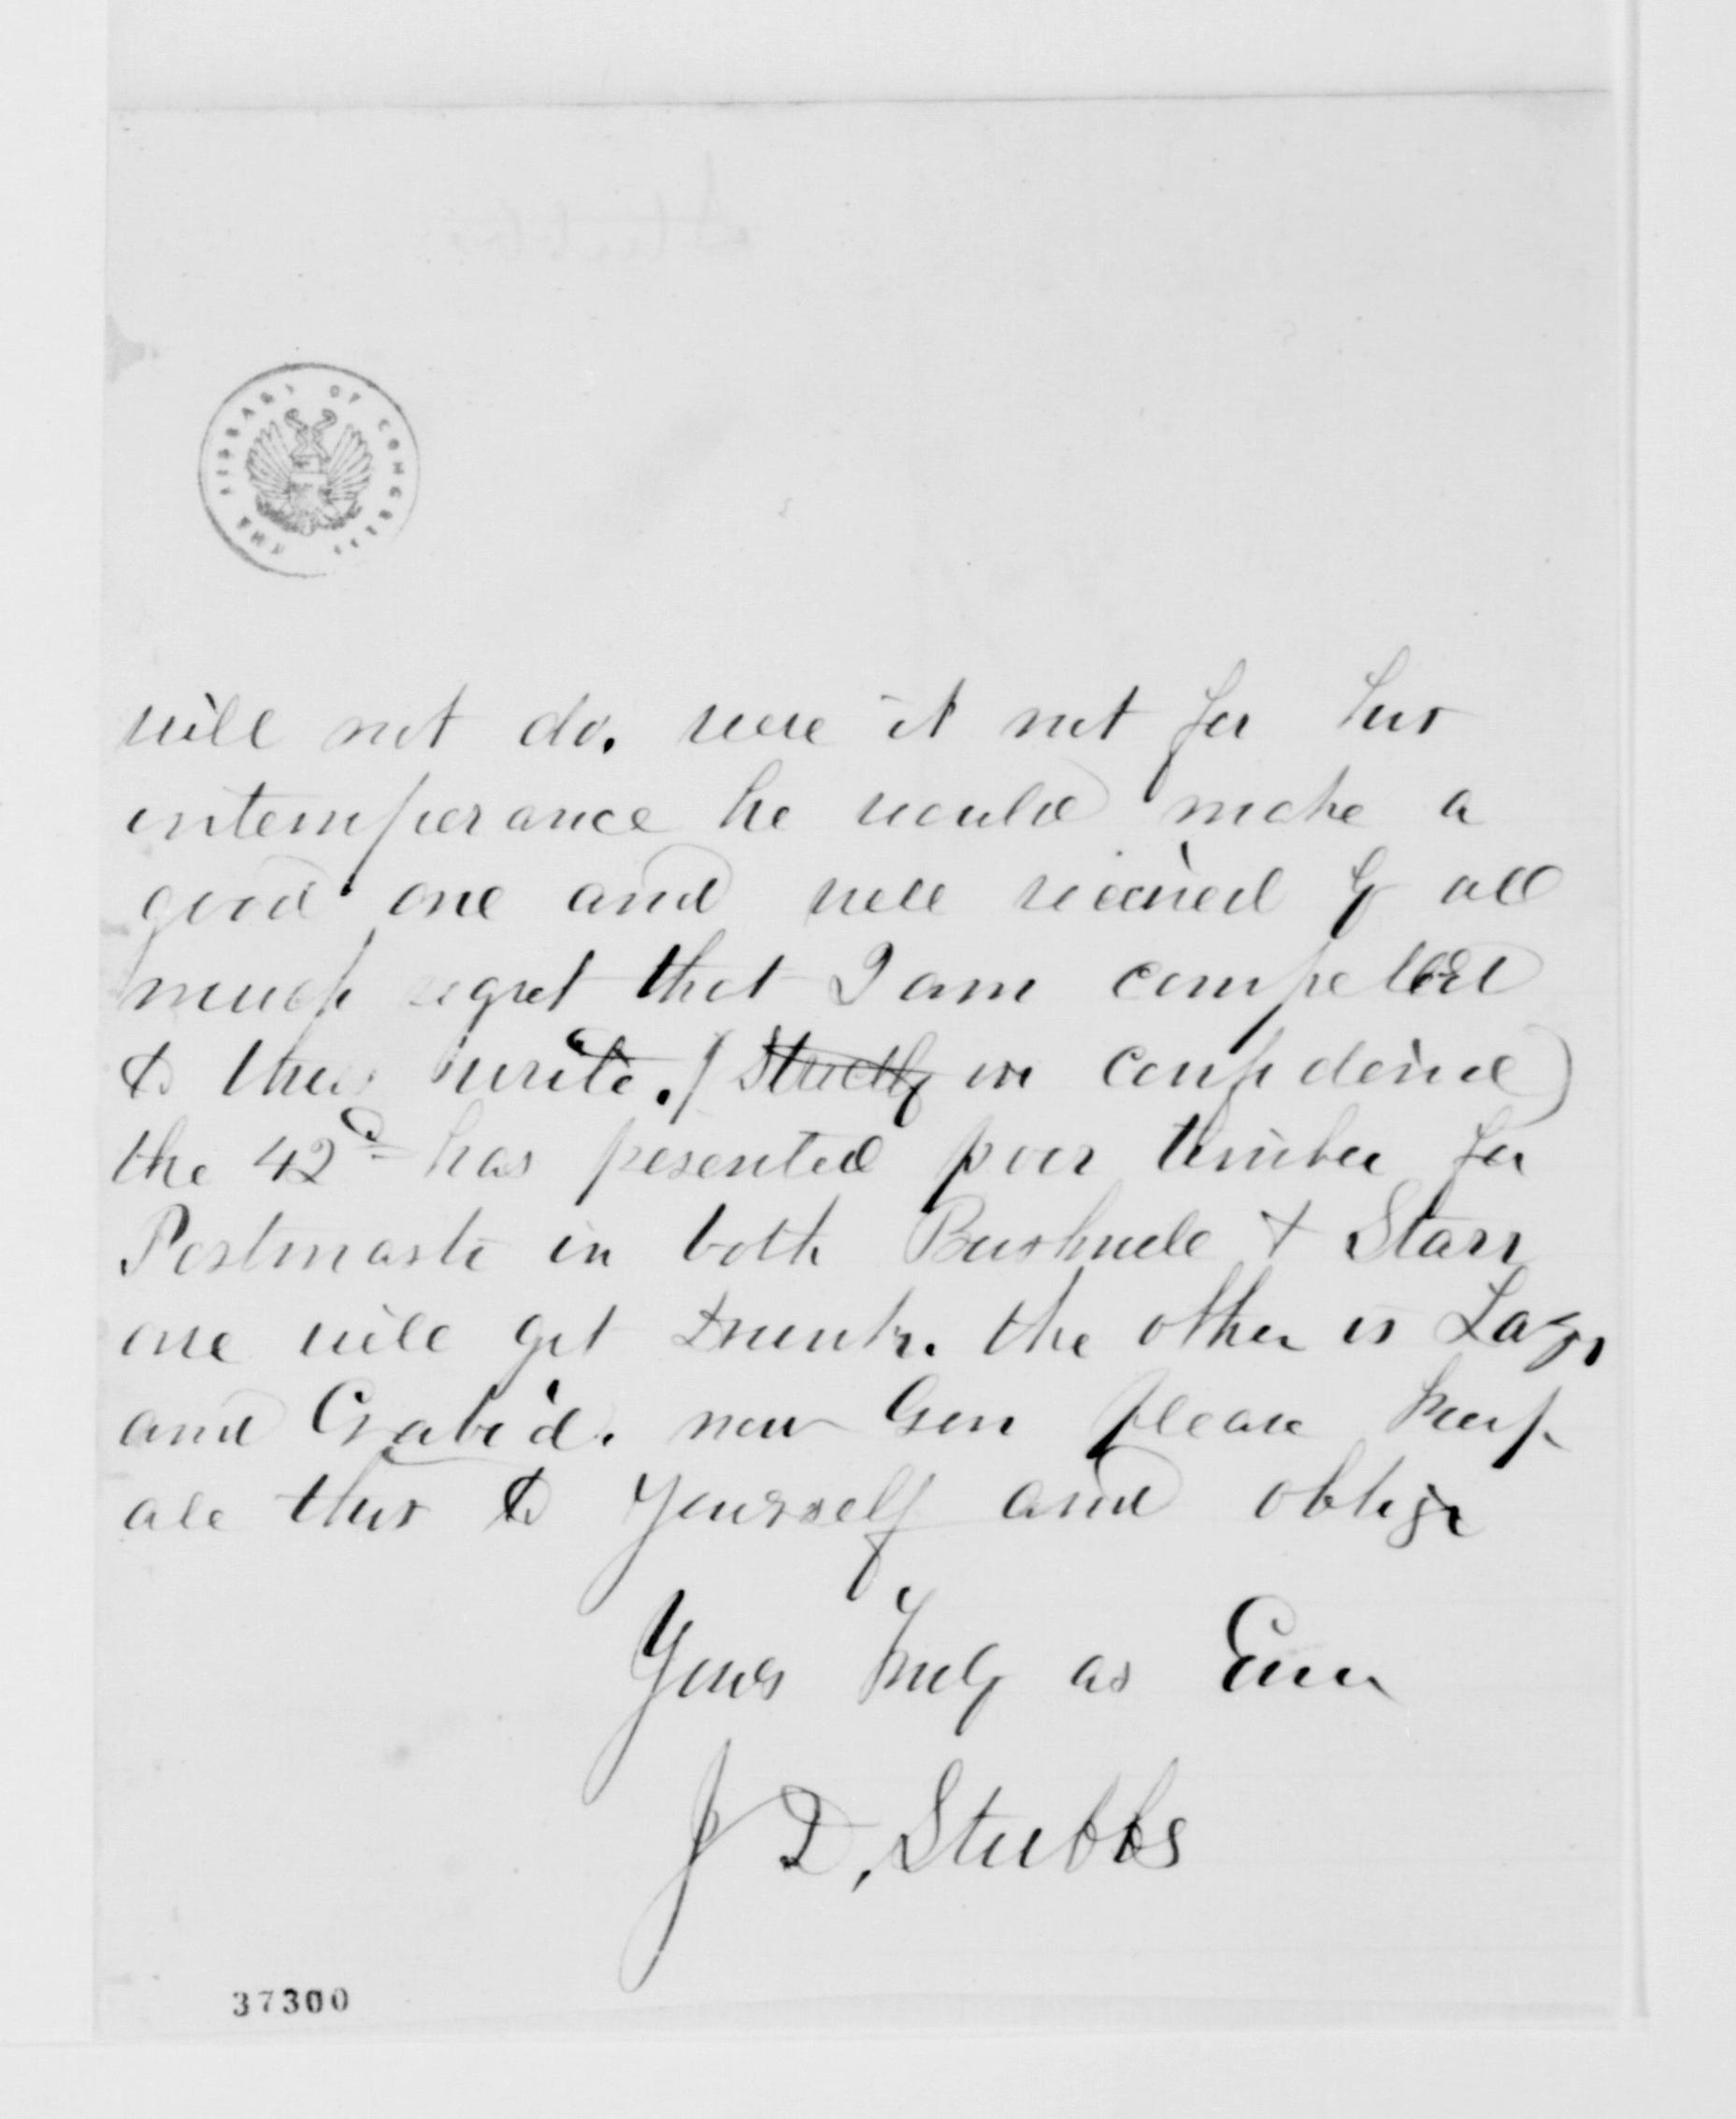 THE LIBRARY OF CONGRESS
will not do. were it not for his
intemperance he would make a
good one and well recieved by all
much regret that I am compelled
to thus write. (Strictly in confidence)
the 42d has pesented poor timber for
Postmaste in both Bushnell & Starr
one will get Drunk. the other is Lazy
and Crabid. now Gen please keep
all this to yourself and oblige
Yours Truly as Ever
J D, Stubbs
37300